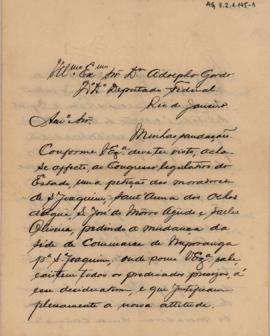 AG 3.2.1.145-1
Ill.mo Ex.mo Snr. Dr. Adolpho Gordo
D.D. Deputado Federal
Rio de Janeiro
Minhas saudações.
Conforme V. Ex.ª deve ter visto, acha-
se affecto, ao Congresso legislativo do
Estado uma petição dos moradores
de S. Joaquim, Sant'Anna dos Olhos
d'Agua, S. José do Morro Agudo e Salles
Oliveira, pedindo a mudança da
séde da Commarca de Nuporanga
p.ª S. Joaquim, onde como V. Ex.ª sabe
existem todos os predicados precisos á
esse desideratum e que justificam
plenamente a nossa attitude.